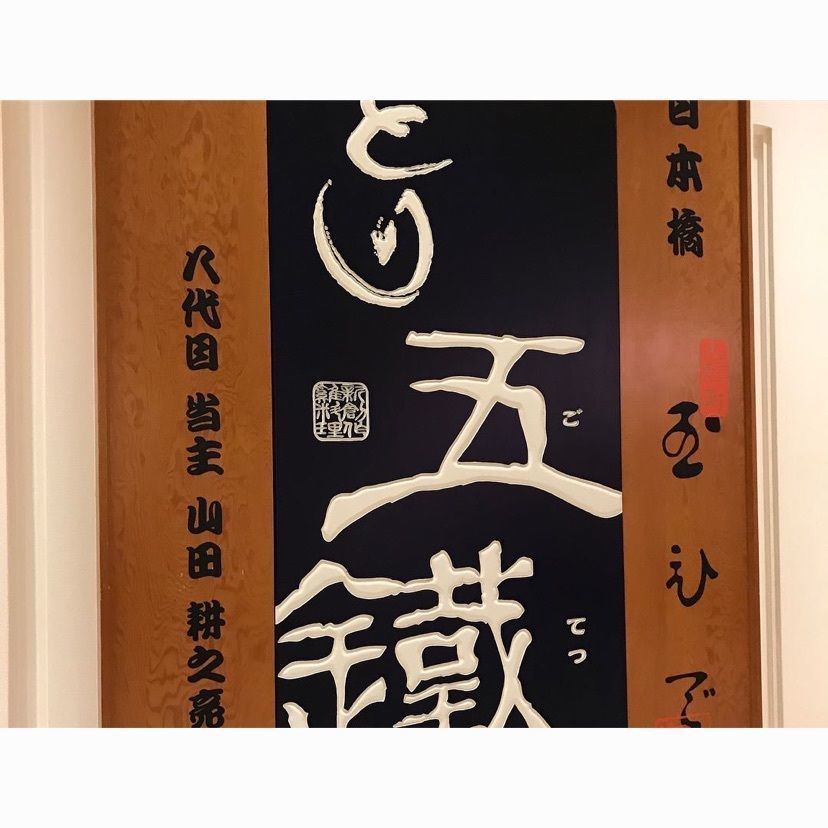 日本橋 玉ひで
とり
五鐵
ご
てつ
新創作
料理
八代目 当主 山田 耕之亮